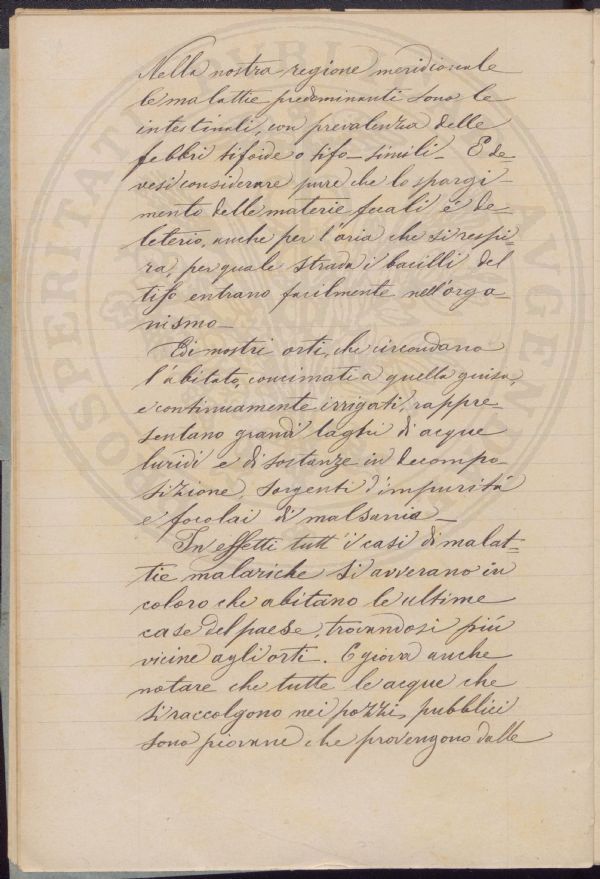 Nella nostra regione meridionale
le malattie predominanti sono le
intestinali, con prevalenza delle
febbri tifoide o tifo-simili- E de-
vesi considerare pure che lo spargi-
mento delle materie fecali é de-
leterio, anche per l'aria che si respi-
ra, per quale strada i bacilli del
tifo entrano facilmente nell'orga-
nismo-
Ed i nostri orti, che circondano
l'abitato, concimati a quella guisa,
e continuamente irrigati, rappre-
sentano grandi laghi di acque
luridi e di sostanze in decompo-
sizione, sorgenti d'impuritá
e focolai di malsania-
In effetti tutt'i casi di malat-
tie malariche si avverano in
coloro che abitano le ultime
case del paese, trovandosi piú
vicine agli orti. E giova anche
notare che tutte le acque che
si raccolgono nei pozzi pubblici
sono piovane che provengono dalle
PROSPERITATI PVBLI AVGEN